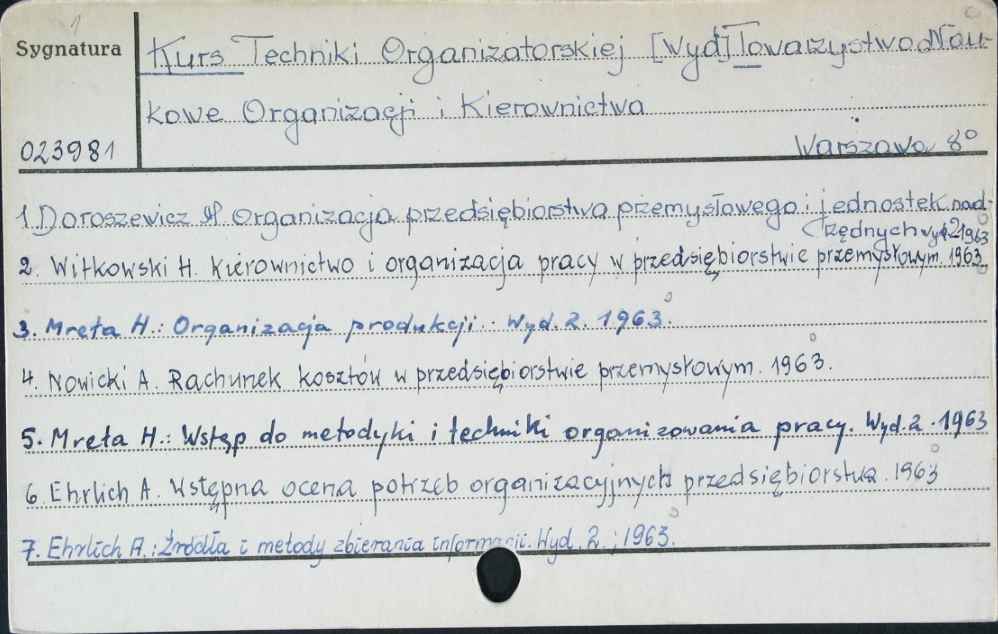 Sygnatura
Kurs Techniki Organizatorskiej [Wyd] Towarzystwo Nau-
kowe Organizacji i Kierownictwa
023981
Warszawa 8°
1 Doroszewicz Organizacja przedsiębiorstwa przemysłowego i jednostek nad-
rzędnych wyd 2 1963
2. Witkowski H. Kierownictwo i organizacja pracy w przedsiębiorstwie przemysłowym. 1963
3. Mreła H.: Organizacja produkcji. Wyd. 2. 1963.
4. Nowicki A. Rachunek kosztów w przedsiębiorstwie przemysłowym. 1963.
5. Mreła H.: Wstęp do metodyki i techniki organizowania pracy. Wyd. 2. 1963
6. Ehrlich A. Wstępna ocena potrzeb organizacyjnych przedsiębiorstwa. 1963
7. Ehrlich A.: Źródła i metody zbierania informacji. Wyd. 2.; 1963.